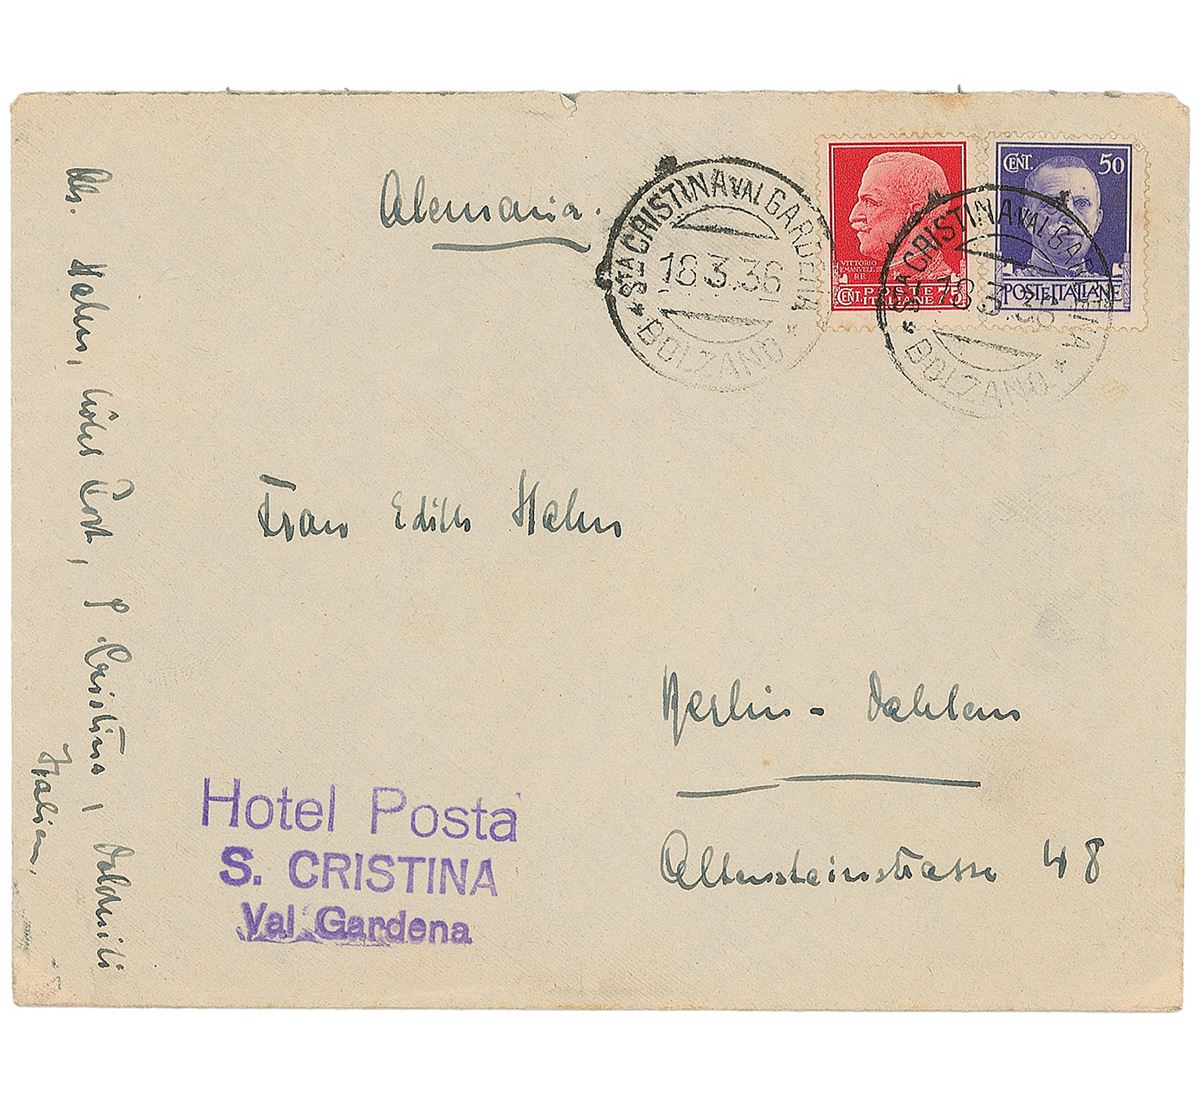 Alemania.
STA CRISTINA VAL GARDENA
18.3.36
* BOLZANO *
VITTORIO
EMANUELE III
RE
POSTE
CENT. ITALIANE 75
CENT. 50
POSTE ITALIANE
STA CRISTINA VAL GARDENA
18.3.36
* BOLZANO *
Frau Edith Hahn
Berlin-Dahlem
Altensteinstrasse 48
Hotel Posta
S. CRISTINA
Val Gardena
Abs. Hahn, Hotel Post, S. Cristina, Dolomiti
Italien.